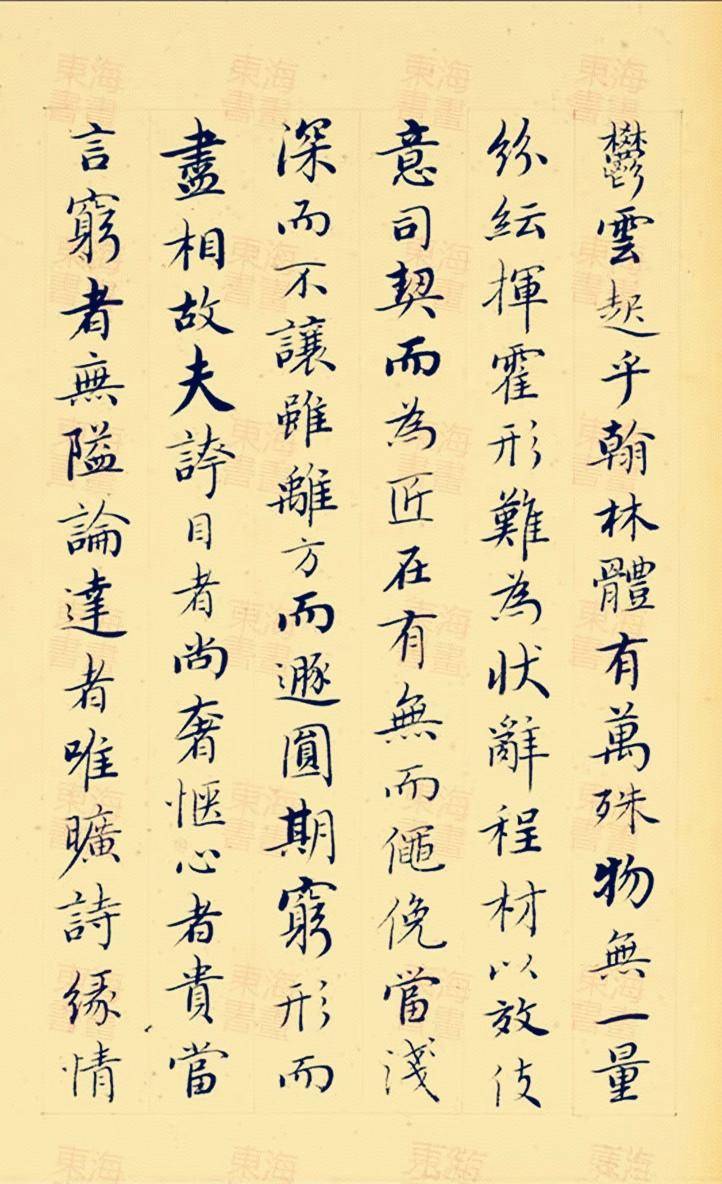 鬱雲起乎翰林體有萬殊物無一量
紛紜揮霍形難為状辭程材以效伎
意司契而為匠在有無而僶俛當淺
深而不讓雖離方而遯圓期窮形而
盡相故夫誇目者尚奢愜心者貴當
言窮者無隘論達者唯曠詩緣情
東海書畫
東海書畫
東海書畫
東海書畫